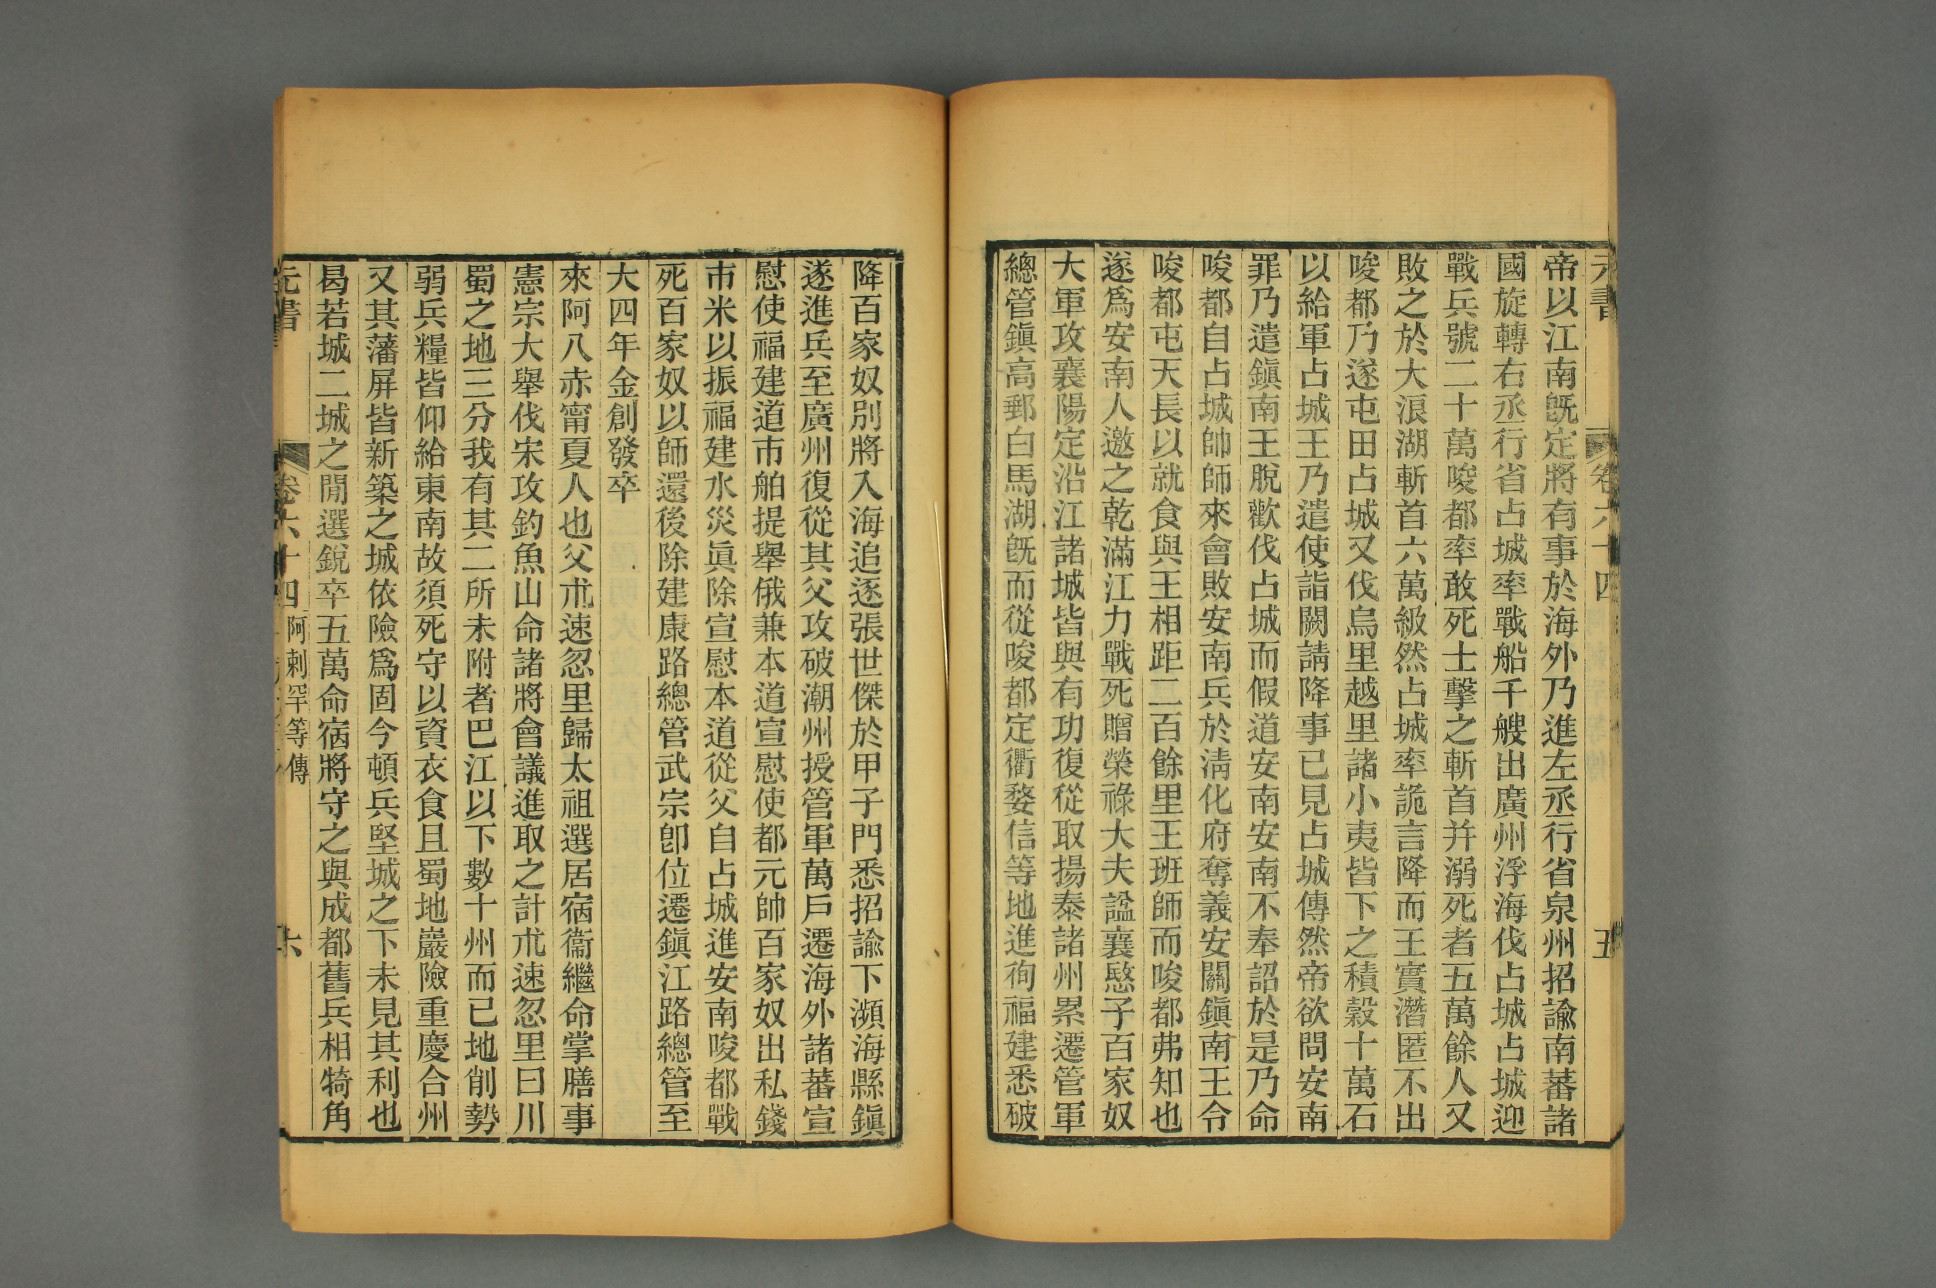 元書 卷六十四 五
帝以江南旣定將有事於海外乃進左丞行省泉州招諭南蕃諸
國旋轉右丞行省占城率戰船千艘出廣州浮海伐占城占城迎
戰兵號二十萬唆都率敢死士擊之斬首并溺死者五萬餘人又
敗之於大浪湖斬首六萬級然占城率詭言降而王實潛匿不出
唆都乃遂屯田占城又伐烏里越里諸小夷皆下之積穀十萬石
以給軍占城王乃遣使詣闕請降事已見占城傳然帝欲問安南
罪乃遣鎭南王脫歡伐占城而假道安南安南不奉詔於是乃命
唆都自占城帥師來會敗安南兵於淸化府奪義安關鎭南王令
唆都屯天長以就食與王相距二百餘里王班師而唆都弗知也
遂爲安南人邀之乾滿江力戰死贈榮祿大夫諡襄愍子百家奴
大軍攻襄陽定沿江諸城皆與有功復從取揚泰諸州累遷管軍
總管鎭高郵白馬湖旣而從唆都定衢婺信等地進徇福建悉破
降百家奴別將入海追逐張世傑於甲子門悉招諭下瀕海縣鎭
遂進兵至廣州復從其父攻破潮州授管軍萬戶遷海外諸蕃宣
慰使福建道市舶提舉俄兼本道宣慰使都元帥百家奴出私錢
市米以振福建水災眞除宣慰本道從父自占城進安南唆都戰
死百家奴以師還後除建康路總管武宗卽位遷鎭江路總管至
大四年金創發卒
來阿八赤甯夏人也父朮速忽里歸太祖選居宿衞繼命掌膳事
憲宗大舉伐宋攻釣魚山命諸將會議進取之計朮速忽里曰川
蜀之地三分我有其二所未附者巴江以下數十州而已地削勢
弱兵糧皆仰給東南故須死守以資衣食且蜀地巖險重慶合州
又其藩屏皆新築之城依險爲固今頓兵堅城之下未見其利也
曷若城二城之閒選銳卒五萬命宿將守之與成都舊兵相犄角
元書 卷六十四 阿剌罕等傳 六